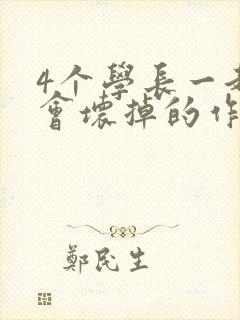 4个學長一
會壞掉的作
鄭民生